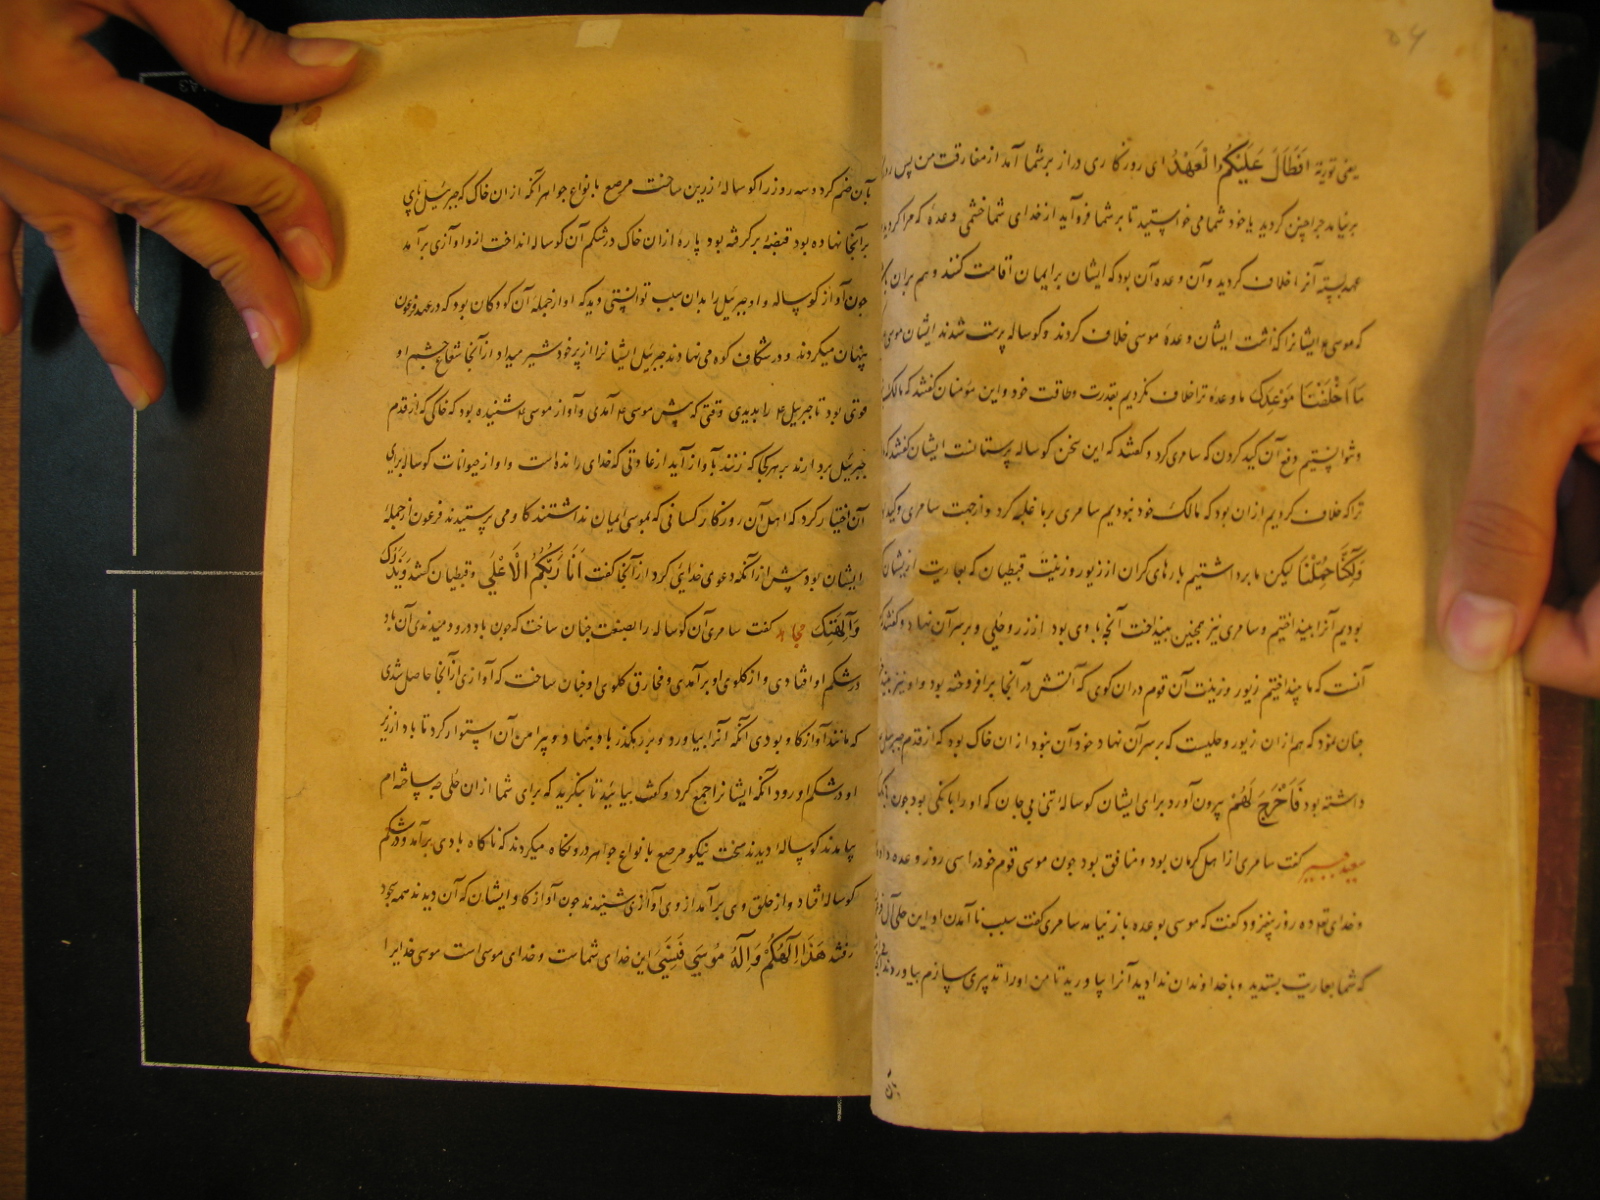 یعنی توریة اَفَطَالَ عَلَیْکُمُ الْعَهْدُ ای روزکاری دراز بر شما آمد از مفارقت من پس
بر نیامد چرا چنین کردید یا خود شما می خواستید تا بر شما فرو آید از خدای شما خشمی وعدۀ که مرا کردید
عهد بسته آنرا خلاف کردید و آن وعده آن بود که ایشان بر ایمان اقامت کنند و هم بران
که موسی ایشانرا کذاشت ایشان وعدۀ موسی خلاف کردند و کوساله پرست شدند ایشان موسی
مَا اَخْلَفْنَا مَوْعِدَکَ ما وعدۀ ترا خلاف نکردیم بقدرت و طاقت خود و این مؤمنان کفتند که مالک
و نتوانستیم دفع آن کید کردن که سامری کرد و کفتند که این سخن کوساله پرستانست ایشان کفتند که
ترا که خلاف کردیم ازان بود که مالک خود نبودیم سامری بر ما غلبه کرد و از جهت سامری و کید
وَلٰکِنَّا حُمِّلْنَا لیکن ما برداشتیم بارهای کران از زیور و زینت قبطیان که بعاریت از ایشان
بودیم آنرا بینداختیم و سامری نیز همچنین بینداخت آنچه با وی بود از زر و حلی و بر سر آن نهاد و کفتند
آنست که ما بینداختیم زیور و زینت آن قوم دران کوی که آتش در آنجا بر افروخته بود و او نیز
چنان نمود که هم ازان زیور و حلیست که بر سر آن نهاد خود آن نبود ازان خاک بود که از قدم جبرئیل
داشته بود فَاَخْرَجَ لَهُمْ بیرون آورد برای ایشان کوسالۀ تنی بی جان که او را بانکی بود چون
سعید جبیر کفت سامری از اهل کرمان بود و منافق بود چون موسی قوم خود را سی روز وعده داد
و خدای تعه ده روز بیفزود کفت که موسی بوعده باز نیامد سامری کفت سبب نا آمدن او این حلی آل
که شما بعاریت بستدید و با خداوندان ندادید آنرا بیاورید تا من اورا تدبیری سازم بیاوردند
بآن ضم کرد و سه روز را کوسالۀ زرین ساخت مرصع بانواع جواهر آنکه ازان خاک که جبرئیل پای
بر آنجا نهاده بود قبضۀ بر کرفته بود پارۀ ازان خاک در شکم آن کوساله انداخت ازو آوازی بر آمد
چون آواز کوساله و او جبرئیل را بدان سبب توانستی دید که او از جملۀ آن کودکان بود که در عهد فرعون
پنهان میکردند و در شکاف کوه می نهادند جبرئیل ایشانرا از پر خود شیر میداد از آنجا شعاع چشم او
قوی بود تا جبرئیل را بدیدی وقتی که پیش موسی آمدی و آواز موسی شنیده بود که خاکی که از قدم
جبرئیل بردارند بر هر کجا که زنند بآواز آید از عادتی که خدای رانده است و او از حیوانات کوساله برای
آن اختیار کرد که اهل آن روزکار کسانی که بموسی ایمان نداشتند کاو می پرستیدند فرعون از جملۀ
ایشان بود پیش از آنکه دعوی خدایی کرد از آنجا کفت اَنَا رَبُّکُمُ الْاَعْلٰی و قبطیان کفتند وَیَذَرَکَ
وَآلِهَتَکَ مجاهد کفت سامری آن کوساله را بصنعت چنان ساخت که چون باد درو دمیدندی آن باد
در شکم او افتادی و از کلوی او بر آمدی و مخارق کلوی او چنان ساخت که آوازی از آنجا حاصل شدی
که مانند آواز کاو بودی آنکه آنرا بیاورد و بر رهکذر باد بنهاد و پیرامن آن استوار کرد تا باد از زیر
او در شکم او رود آنکه ایشانرا جمع کرد و کفت بیائید تا بنکرید که برای شما ازان حلی چه ساخته ام
بیامدند کوسالۀ دیدند سخت نیکو مرصع بانواع جواهر درو نکاه میکردند که ناکاه بادی بر آمد و در شکم
کوساله افتاد و از حلق وی بر آمد از وی آوازی شنیدند چون آواز کاو ایشان که آن دیدند همه بسجود
رفتند هٰذَا اِلٰهُکُمْ وَاِلٰهُ مُوسٰی فَنَسِیَ این خدای شماست و خدای موسی است موسی خدایرا